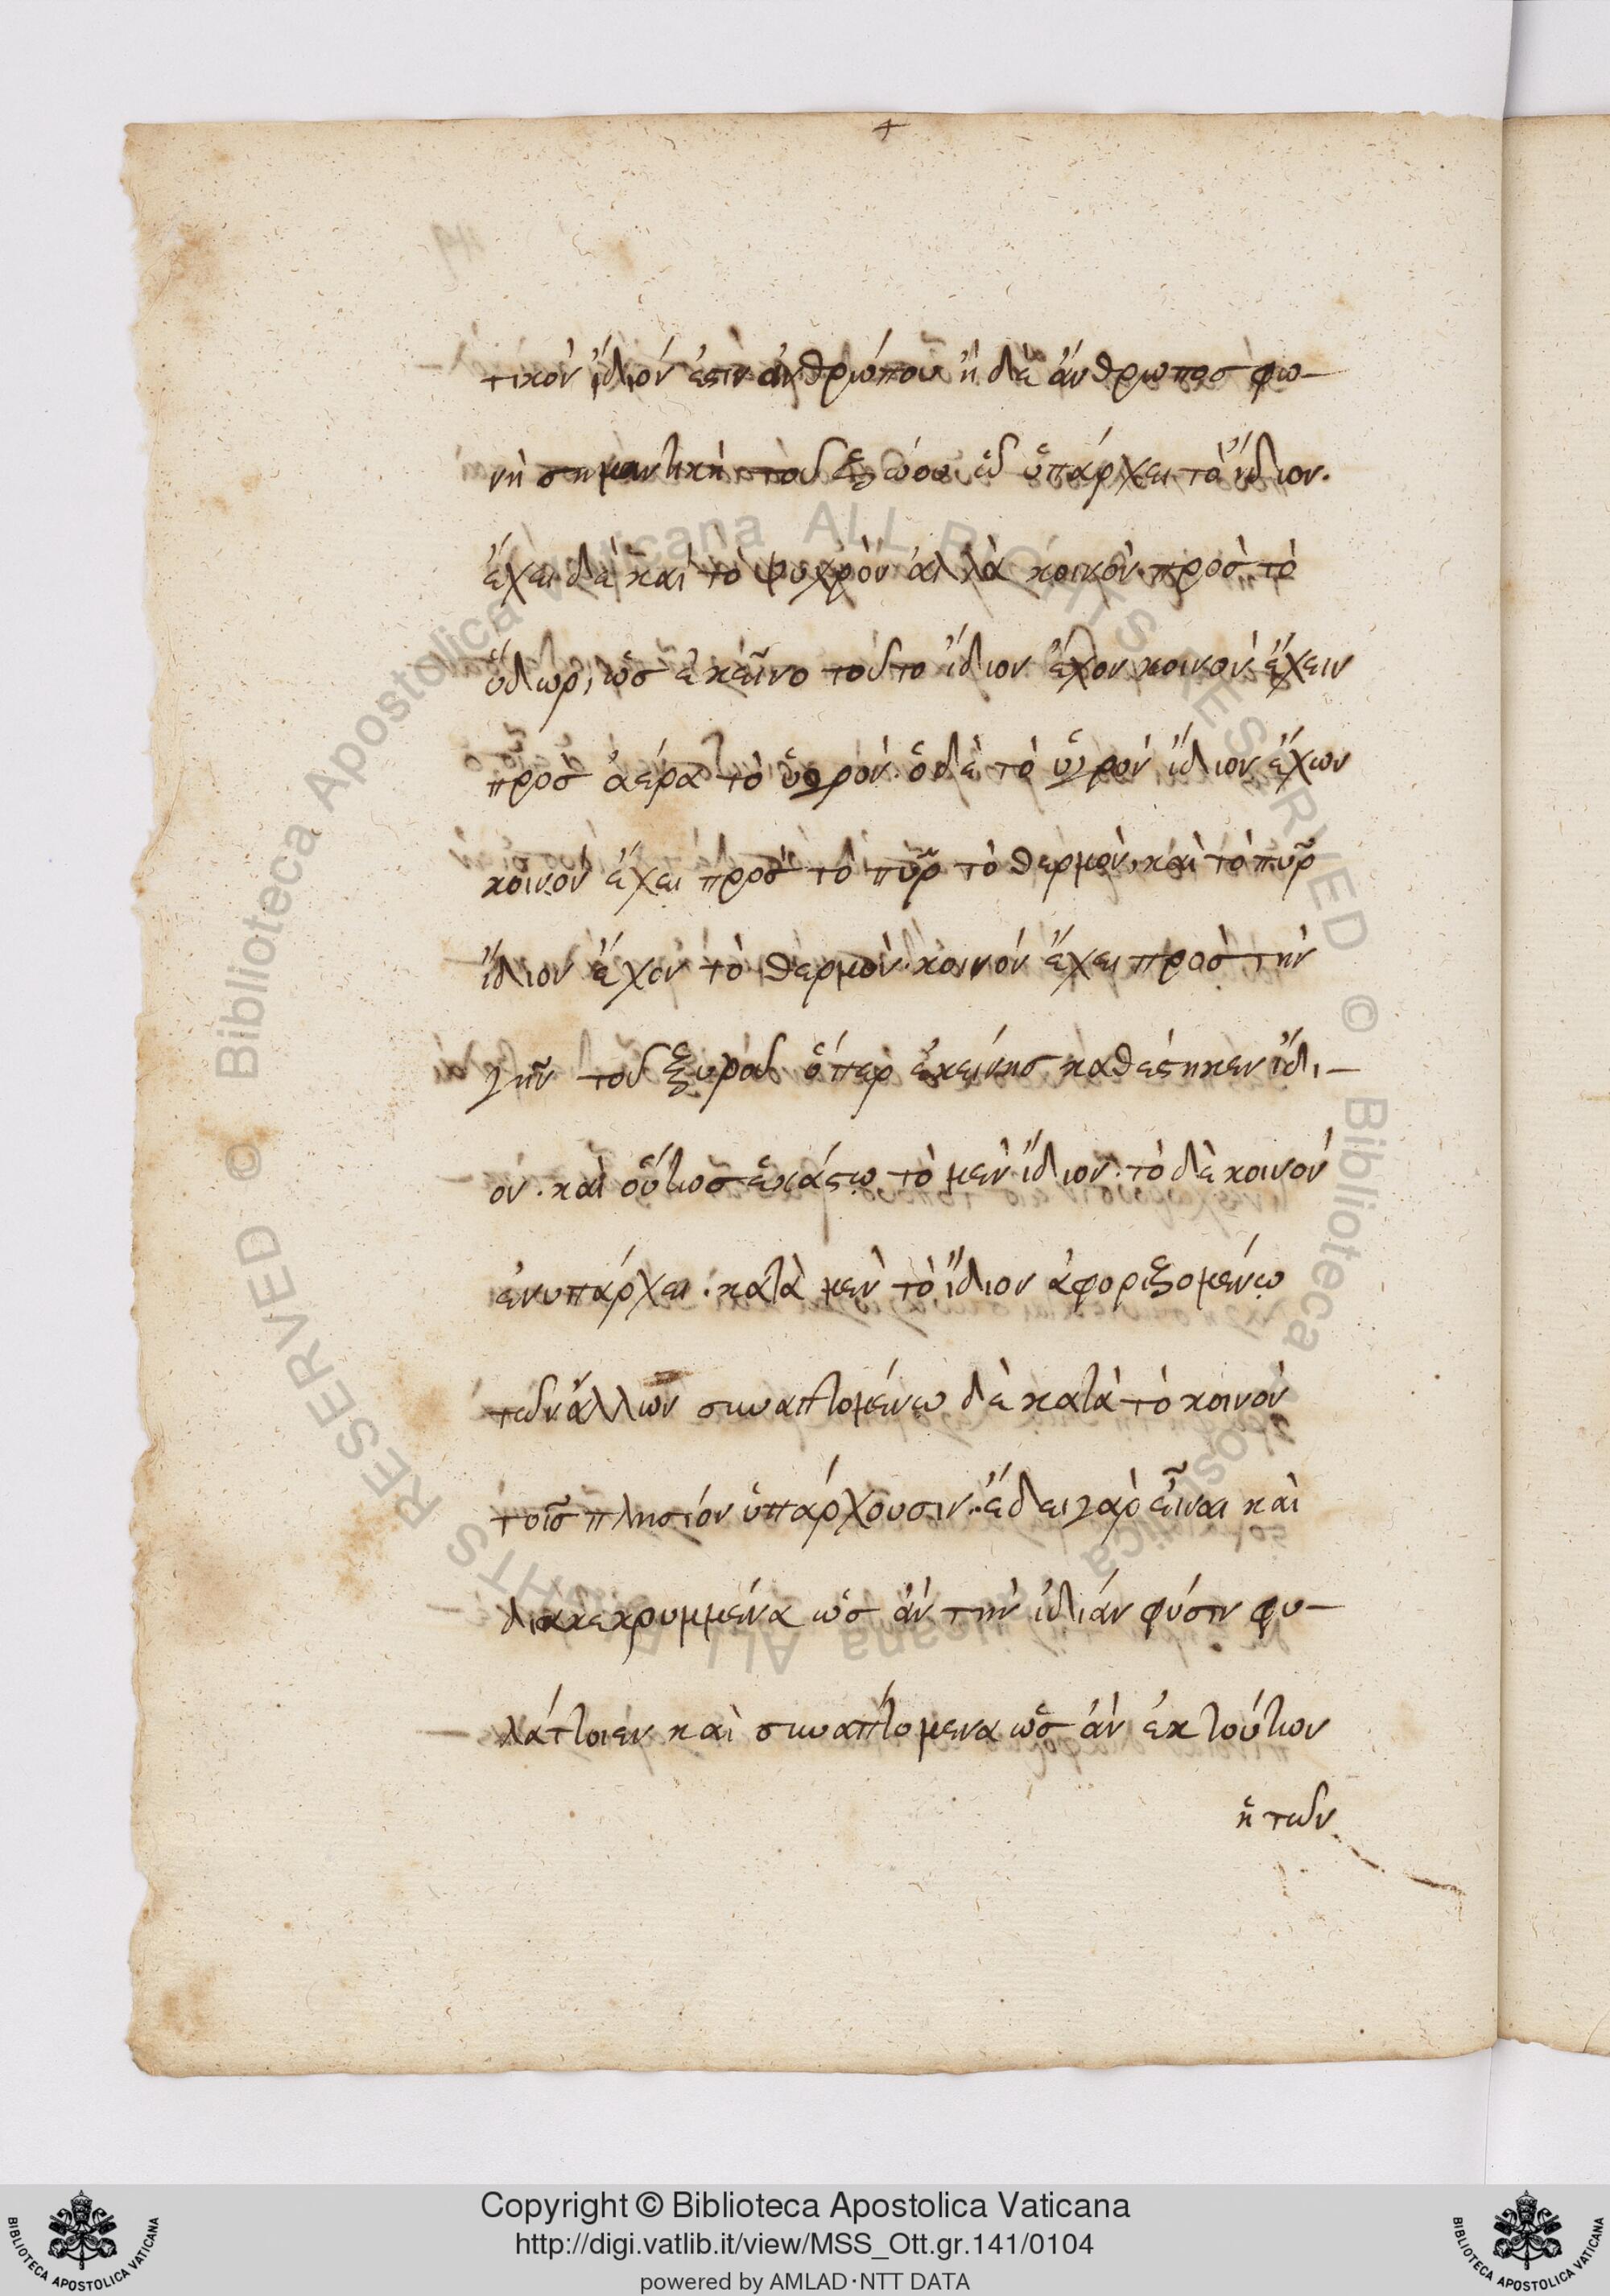 +
τικὸν ἴδιόν ἐστιν ἀνθρώπου ἡ δὲ ἄνθρωπος φω-
νὴ σημαντικὴ τοῦ ζώου οὗ ὑπάρχει τὸ ἴδιον.
ἔχει δὲ καὶ τὸ ψυχρὸν ἀλλὰ κοινὸν πρὸς τὸ
ὕδωρ, ὡς ἐκεῖνο τοῦτο ἴδιον ἔχον κοινὸν ἔχειν
πρὸς ἀέρα τὸ ὑγρόν. ὁ δὲ τὸ ὑγρὸν ἴδιον ἔχων
κοινὸν ἔχει πρὸς τὸ πῦρ τὸ θερμὸν, καὶ τὸ πῦρ
ἴδιον ἔχον τὸ θερμὸν. κοινὸν ἔχει πρὸς τὴν
γῆν τοῦ ξηροῦ ὅπερ ἐκείνης καθέστηκεν ἴδι-
ον. καὶ οὕτως ἑκάστω τὸ μὲν ἴδιον. τὸ δὲ κοινὸν
ἐνυπάρχει. κατὰ μὲν τὸ ἴδιον ἀφοριζομένω
τῶν ἄλλων συναπτομένω δὲ κατὰ τὸ κοινὸν
τοῖς πλησίον ὑπάρχουσιν. ἔδει γὰρ εἶναι καὶ
διακεκρυμμένα ὡς ἂν τὴν ἰδίαν φύσιν φυ-
λάττοιεν καὶ συναπτόμενα ὡς ἂν ἐκ τούτων
ἡ τῶν
Copyright © Biblioteca Apostolica Vaticana
http://digi.vatlib.it/view/MSS_Ott.gr.141/0104
powered by AMLAD·NTT DATA
BIBLIOTECA APOSTOLICA VATICANA
BIBLIOTECA APOSTOLICA VATICANA
© Biblioteca Apostolica Vaticana ALL RIGHTS RESERVED © Biblioteca Apostolica Vaticana ALL RIGHTS RESERVED